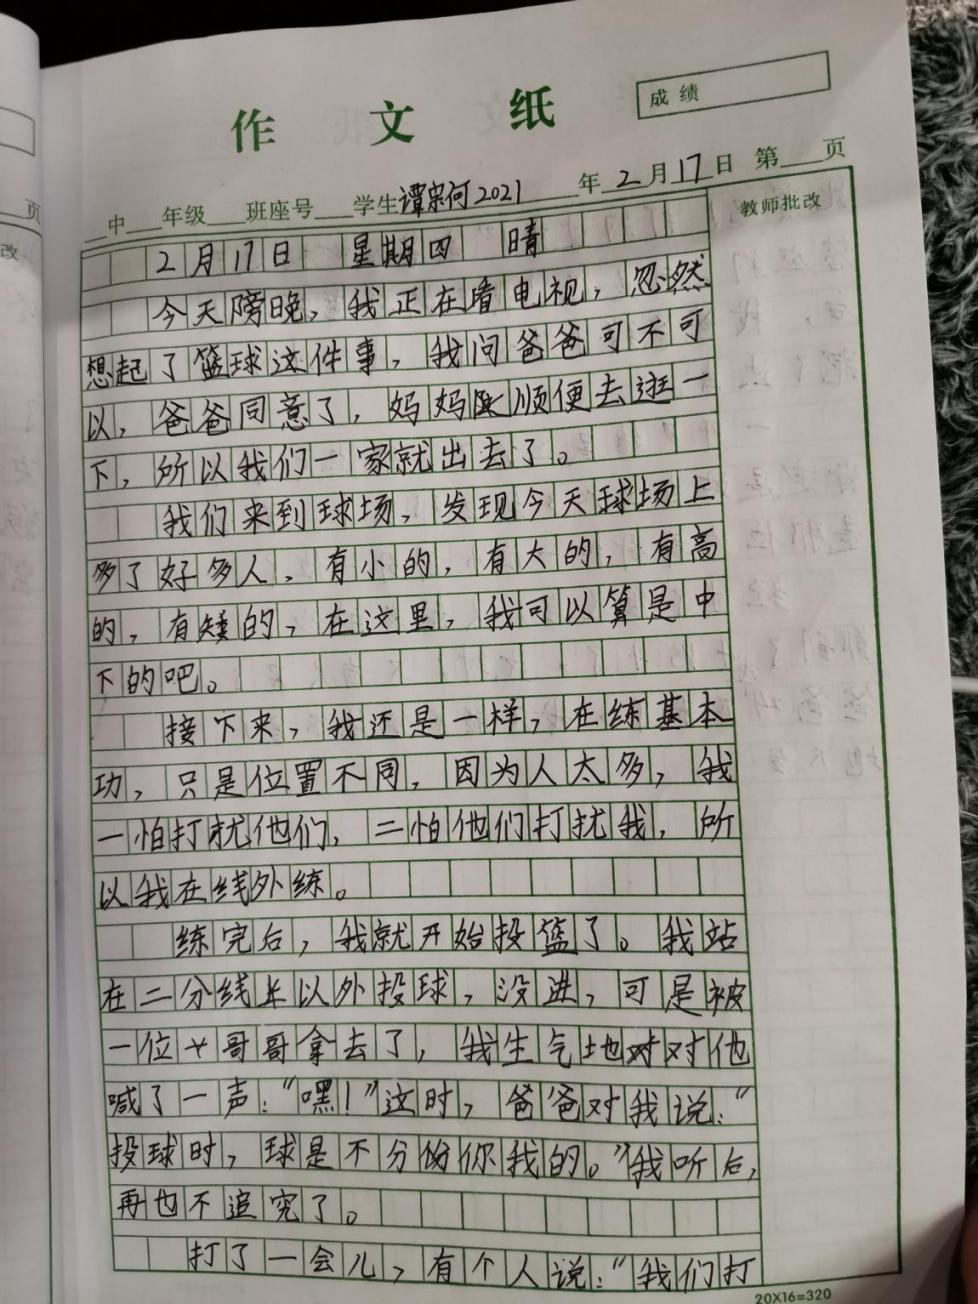 作 文 纸
成 绩
中 年级 班座号 学生谭宗何2021 年2月17日 第 页
教师批改
2月17日 星期四 晴
今天傍晚，我正在看电视，忽然
想起了篮球这件事，我问爸爸可不可
以，爸爸同意了，妈妈顺便去逛一
下，所以我们一家就出去了。
我们来到球场，发现今天球场上
多了好多人，有小的，有大的，有高
的，有矮的，在这里，我可以算是中
下的吧。
接下来，我还是一样，在练基本
功，只是位置不同，因为人太多，我
一怕打扰他们，二怕他们打扰我，所
以我在线外练。
练完后，我就开始投篮了。我站
在二分线以外投球，没进，可是被
一位哥哥拿去了，我生气地对他
喊了一声：“嘿！”这时，爸爸对我说：“
投球时，球是不分你我的。”我听后，
再也不追究了。
打了一会儿，有个人说：“我们打
20X16=320
页
改